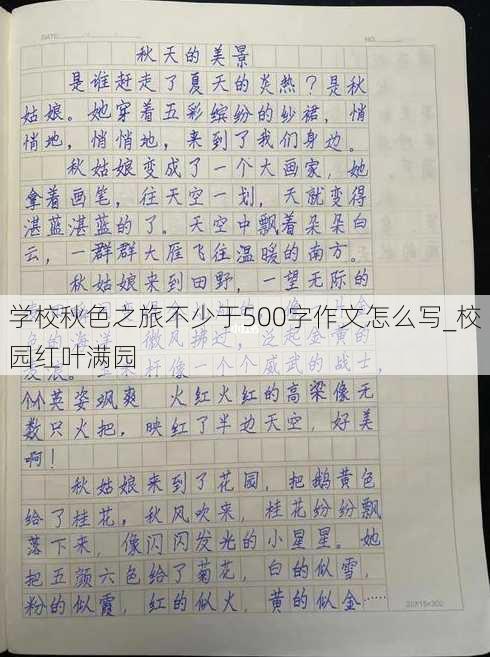 DATE:
NO.
秋天的美景
是谁赶走了夏天的炎热?是秋
姑娘。她穿着五彩缤纷的纱裙,悄
悄地,悄悄地,来到了我们身边。
秋姑娘变成了一个大画家,她
拿着画笔,往天空一划,天就变得
湛蓝湛蓝的了。天空中飘着朵朵白
云,一群群大雁飞往温暖的南方。
秋姑娘来到田野,一望无际的
学校秋色之旅不少于500字作文怎么写_校
园红叶满园
个个英姿飒爽 火红火红的高粱像无
数只火把,映红了半边天空,好美
啊!
秋姑娘来到了花园,把鹅黄色
给了桂花,秋风吹来,桂花纷纷飘
落下来,像闪闪发光的小星星。她
把五颜六色给了菊花,白的似雪,
粉的似霞,红的似火,黄的似金……
20X15=300